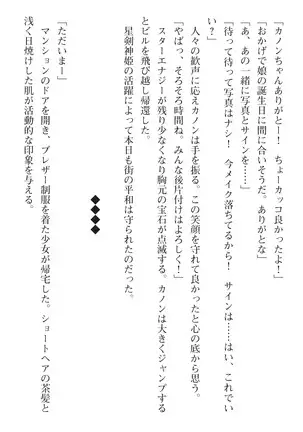 「カノンちゃんありがとー！　ちょーカッコ良かったよ！」
「おかげで娘の誕生日に間に合いそうだ。ありがとな」
「あ、あの一緒に写真とサインを……」
「待って待って写真はナシ！　今メイク落ちてるから！　サインは……はい、これでい
い？」
　人々の歓声に応えカノンは手を振る。この笑顔が守れて良かったと心の底から思う。
「やばっ、そろそろ時間ね。みんな後片付けはよろしく！」
　スターエナジーが残り少なくなり胸元の宝石が点滅する。カノンは大きくジャンプする
とビルを飛び越し帰還した。
　星剣神姫の活躍によって本日も街の平和は守られたのだった。
◆◆◆◆
「ただいまー」
　マンションのドアを開き、ブレザー制服を着た少女が帰宅した。ショートヘアの茶髪と
浅く日焼けした肌が活動的な印象を与える。